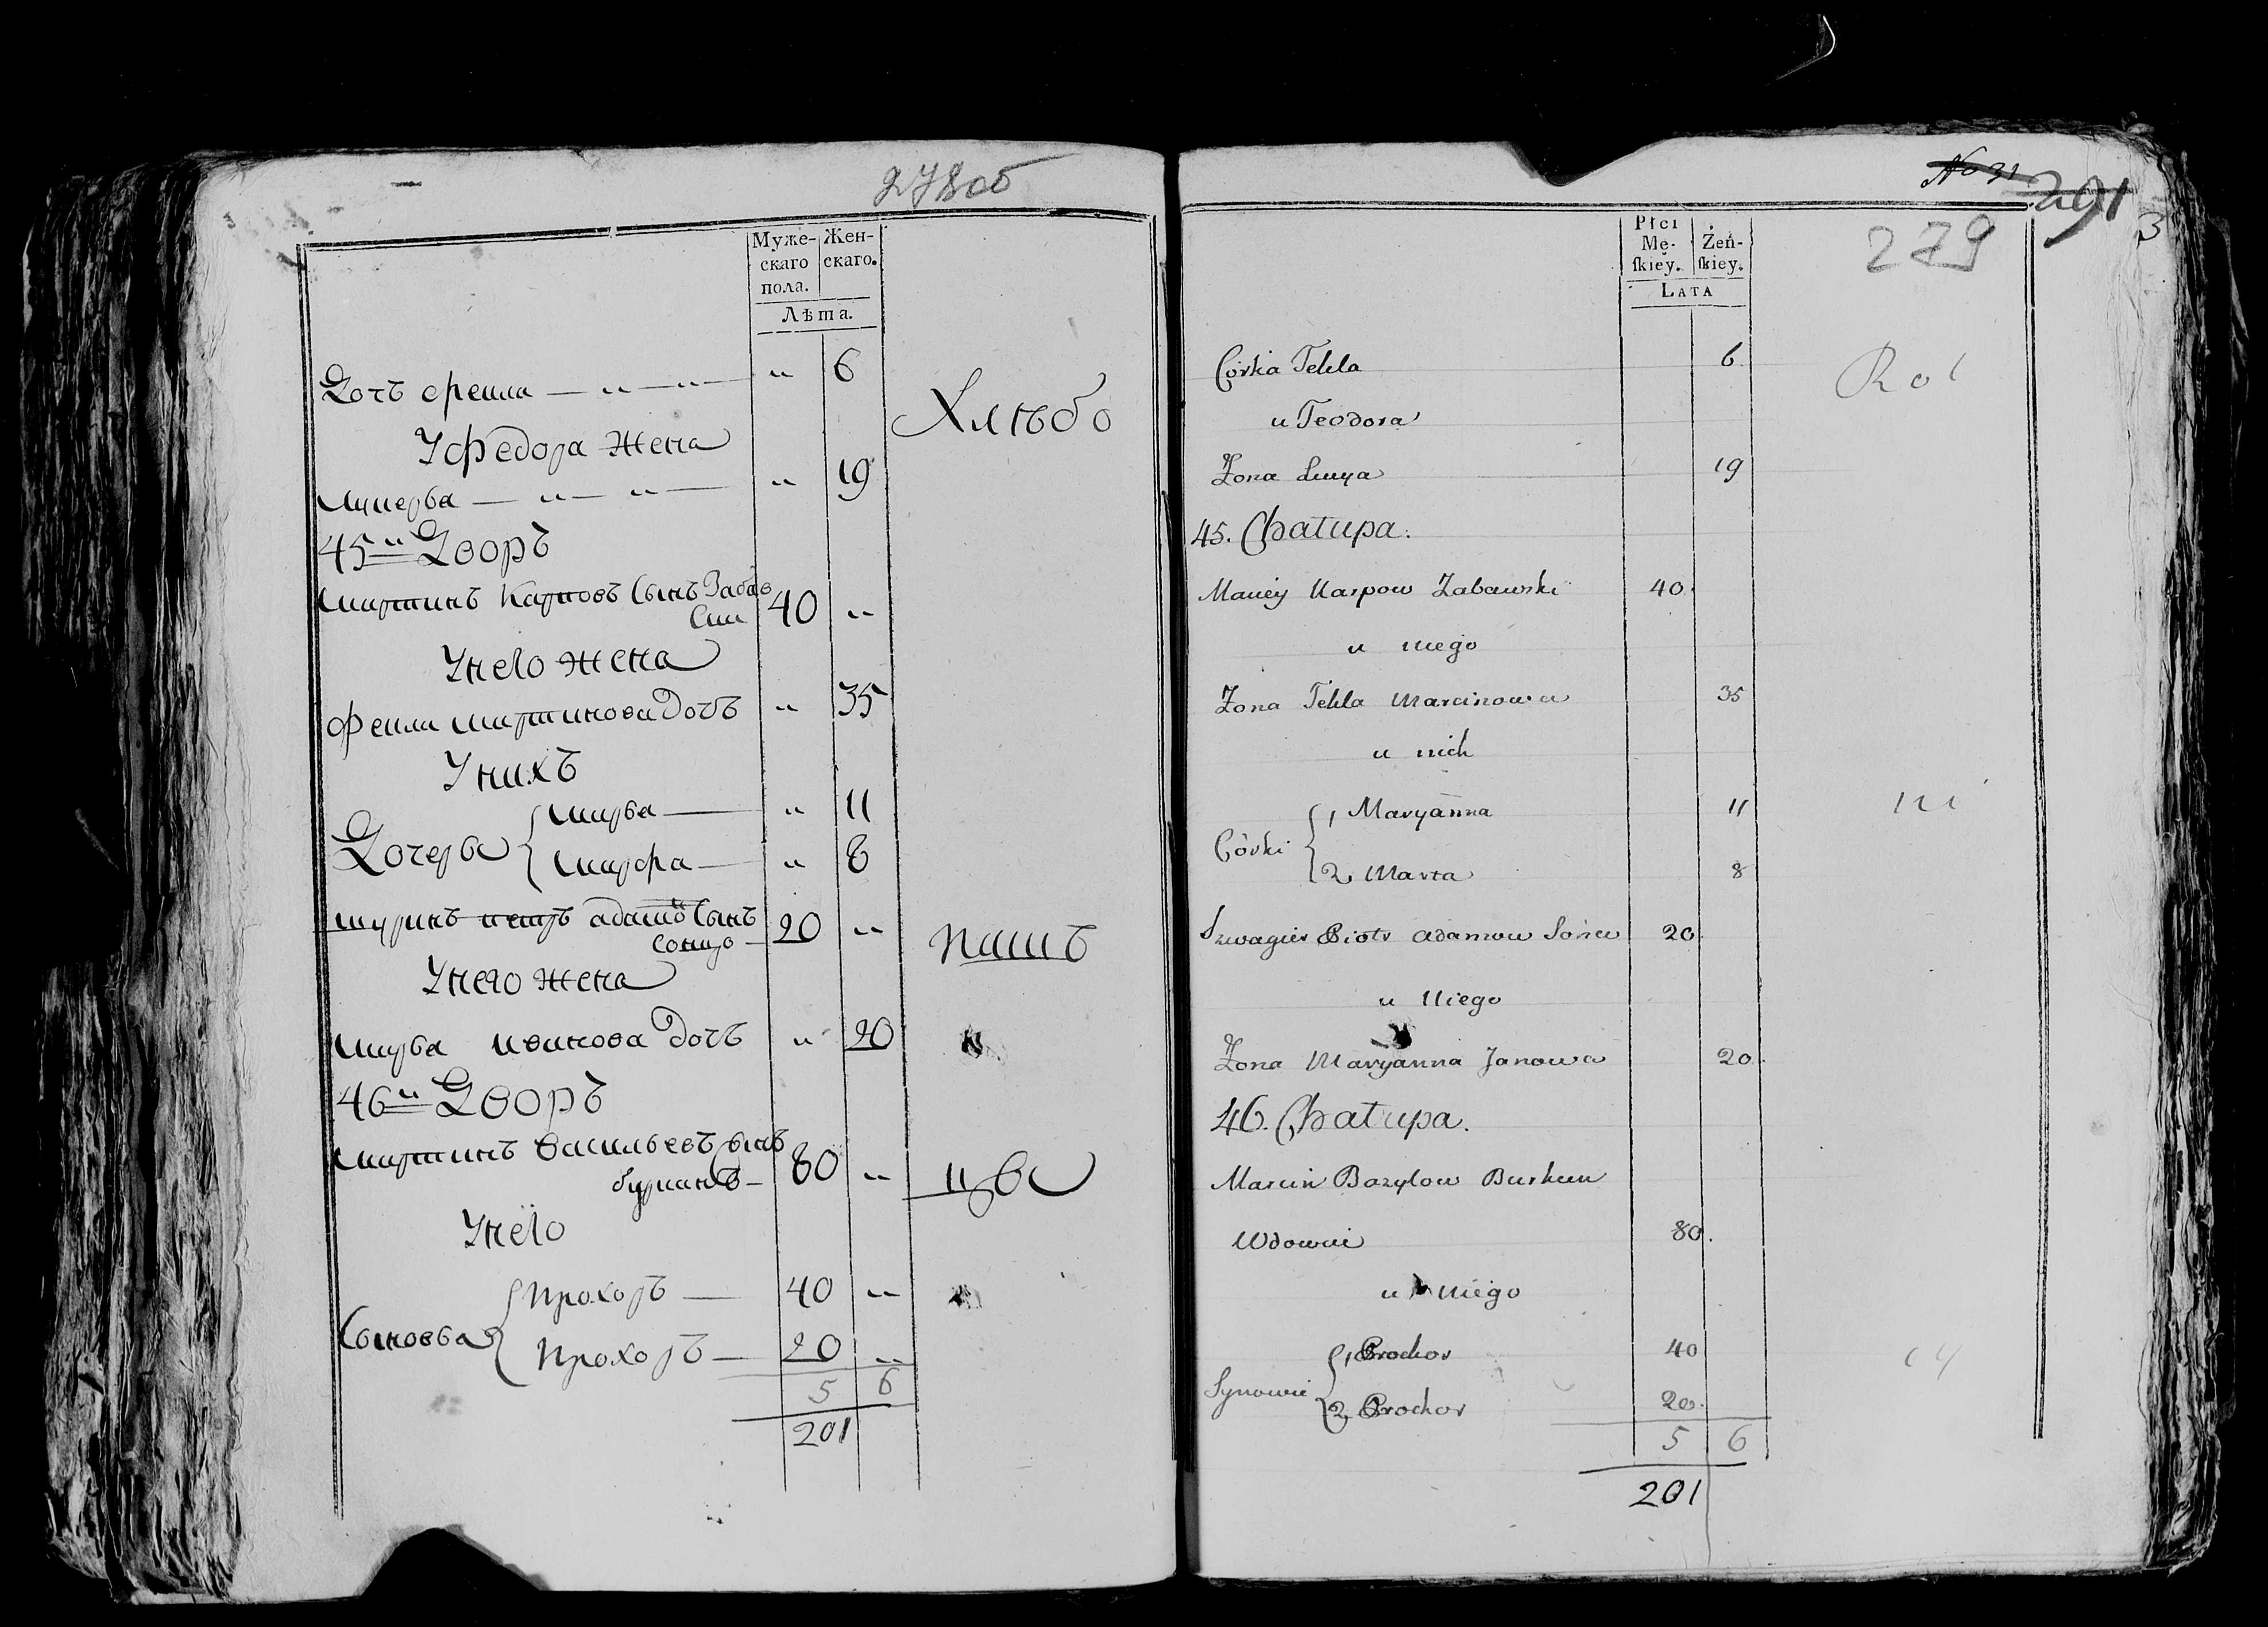 278об
Муже-
скаго
пола.
Жен-
скаго.
Лѣта.
Дочь Фекла — " — " — " 6
Хлѣбо
У Федора Жена
— " — " — " 19
45й Дворъ
Мартинъ Карповъ Сынъ Забав
ски 40 "
У него жена
Фекла Мартинова Дочь " 35
У нихъ
Дочерьи { Марья — " 11
Марфа — " 8
Шуринъ петръ адамов Сынъ
20 "
пашъ
У него жена
Марья Иванова Дочь " 20
46й Дворъ
Мартинъ Васильевъ Сынъ
80 "
У него
Сыновья { Прохоръ — 40 "
Прохоръ — 20 "
5 6
201
No 31
291
3
279
Płci
Mę-
skiey.
Żeń-
skiey.
Lata
Córka Tekla 6
Rol
u Teodora
Żona 19
45. Chałupa.
Maciey Karpow Zabawski 40.
u niego
Żona Tekla Marcinowa 35
u nich
Córki { 1 Maryanna 11
2 Marta 8
Szwagier Piotr Adamow 20.
u Niego
Żona Maryanna Janowa 20.
46. Chałupa.
Marcin Bazylow
Wdowiec 80.
u niego
Synowie { 1 Prochor 40
2 Prochor 20.
5 6
201